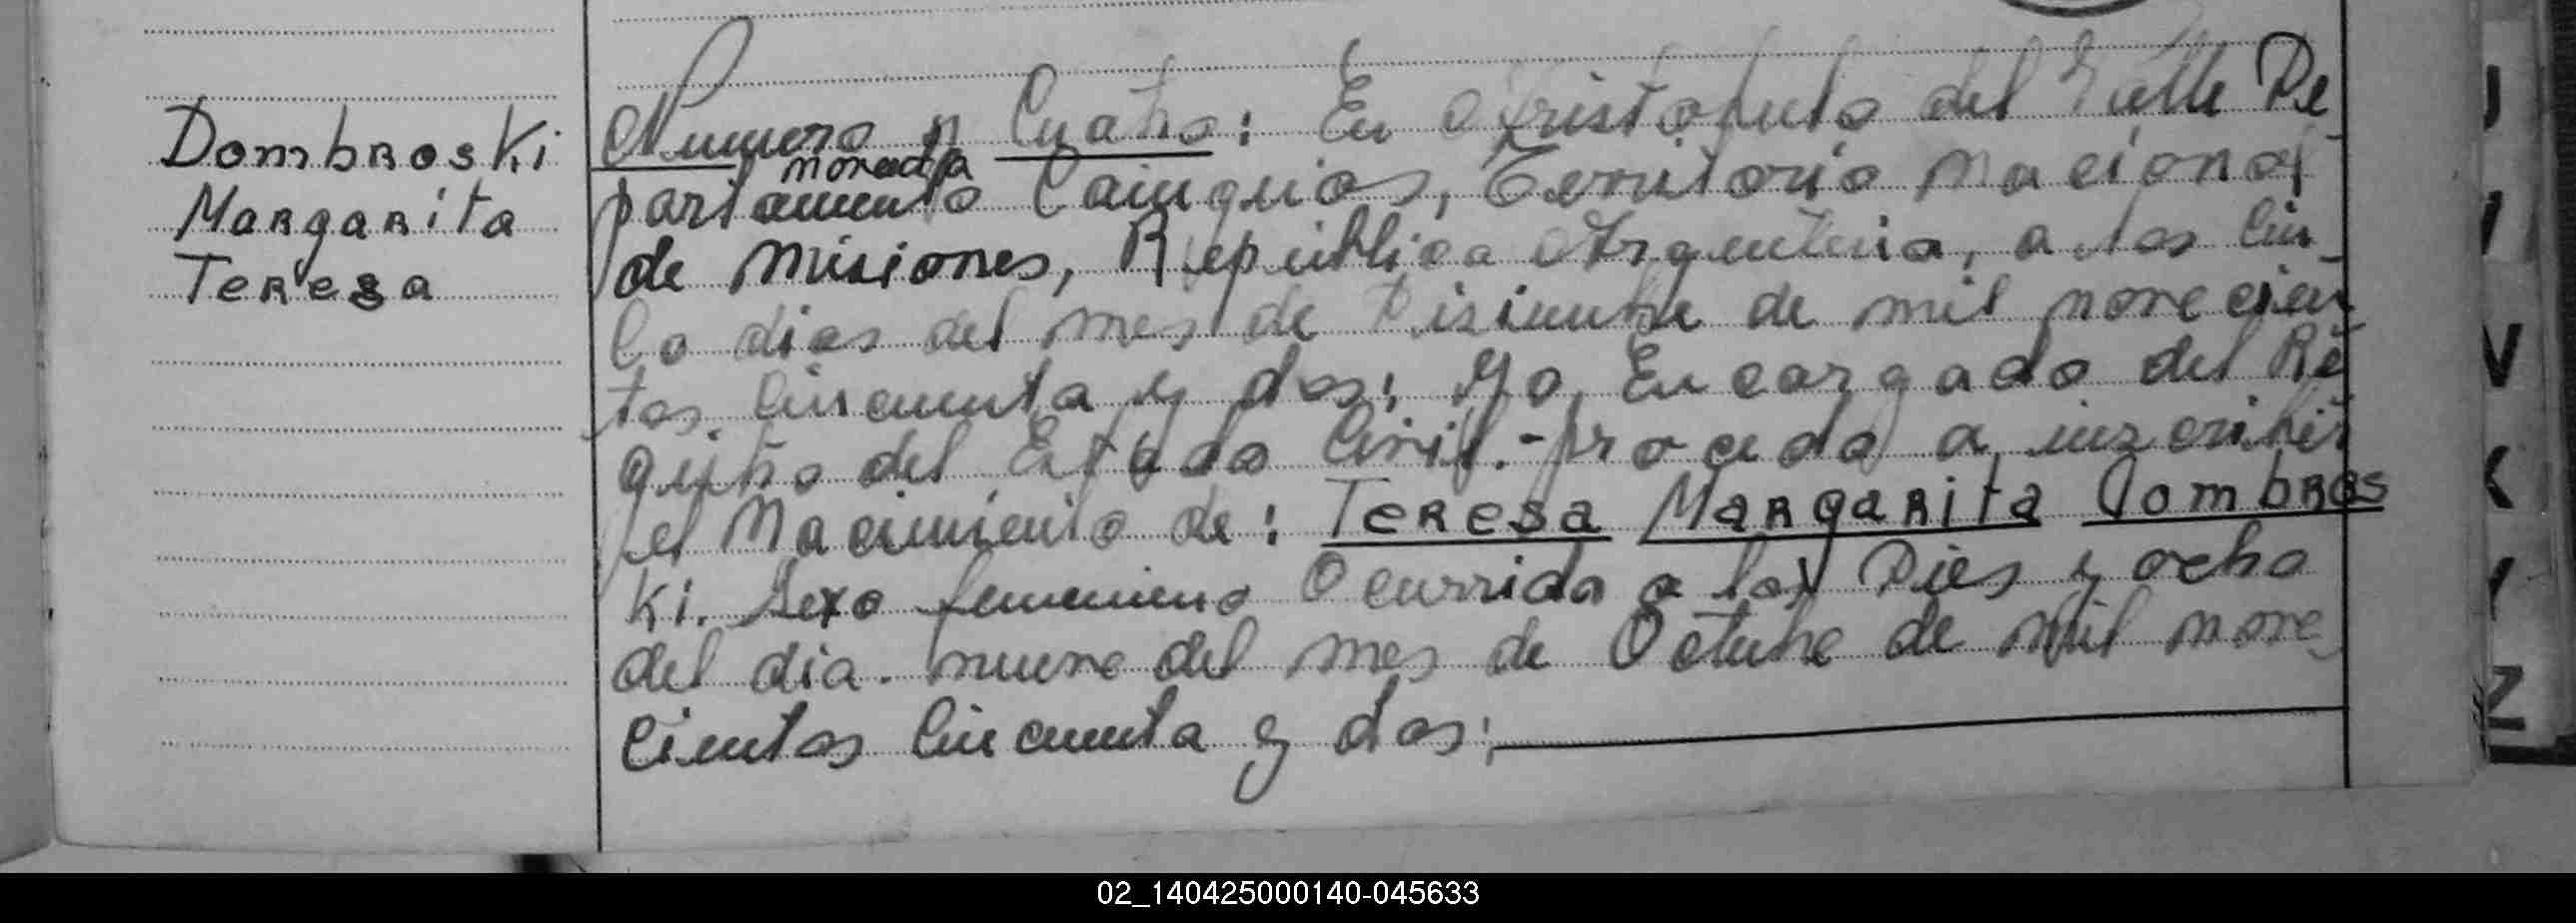 Dombroski
Margarita
Teresa
Numero noventa y Cuatro: En Aristobulo del Valle De
partamento Cainguas, Territorio Nacional
de Misiones, República Argentina, a los Cin
Co dias del mes de Disiembre de mil novecien
tos Cincuenta y dos; Yo, Encargado del Re
gistro del Estado Civil.- procedo a inscribir
el Nacimiento de: Teresa Margarita Dombros
Ki. Sexo femenino Ocurrido a las Dies y ocho
del dia. nueve del mes de Octubre de Mil nove
cientos Cincuenta y dos;
J
I
V
K
Y
Z
02_140425000140-045633